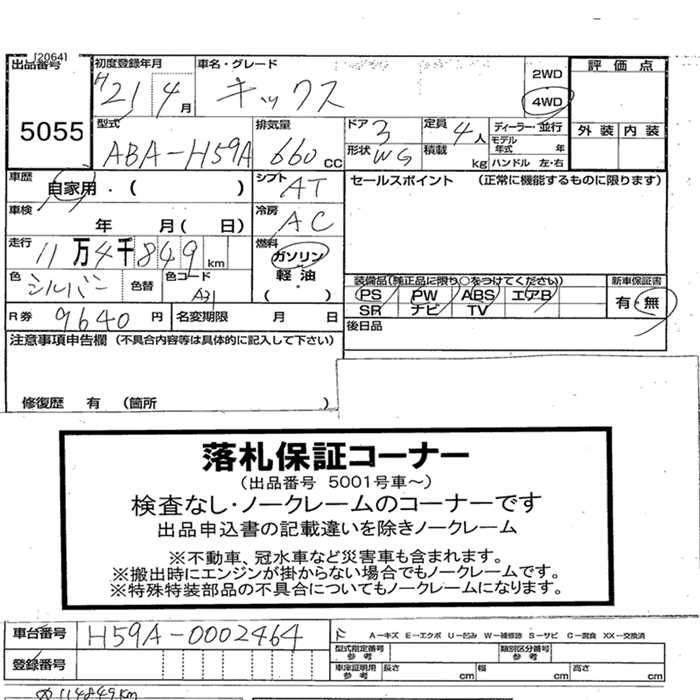 [2064]
出品番号
5055
初度登録年月
H21 4月
車名・グレード
キックス
2WD
4WD
評価点
外装 内装
型式
ABA-H59A
排気量
660 CC
ドア 3
形状 WG
定員 4人
積載 kg
ディーラー・並行
モデル年式 年
ハンドル 左・右
車歴
自家用・( )
シフト AT
セールスポイント (正常に機能するものに限ります)
車検
年 月( 日)
冷房 AC
走行
11万4千849km
燃料
ガソリン
軽油
・( )
色 シルバー
色替
色コード
A31
装備品(純正品に限り○をつけてください)
PS PW ABS エアB
SR ナビ TV
新車保証書
有・無
R券 9640円
名変期限 月 日
後日品
注意事項申告欄 (不具合内容等は具体的に記入して下さい)
修復歴 有 (箇所 )
落札保証コーナー
(出品番号 5001号車~)
検査なし・ノークレームのコーナーです
出品申込書の記載違いを除きノークレーム
※不動車、冠水車など災害車も含まれます。
※搬出時にエンジンが掛からない場合でもノークレームです。
※特殊特装部品の不具合についてもノークレームになります。
車台番号 H59A-0002464
F A-キズ E-エクボ U-凹み W-補修跡 S-サビ C-腐食 XX-交換済
登録番号
型式指定番号 参考
類別区分番号 参考
車庫証明用 参考 長さ cm 幅 cm 高さ cm
114849km